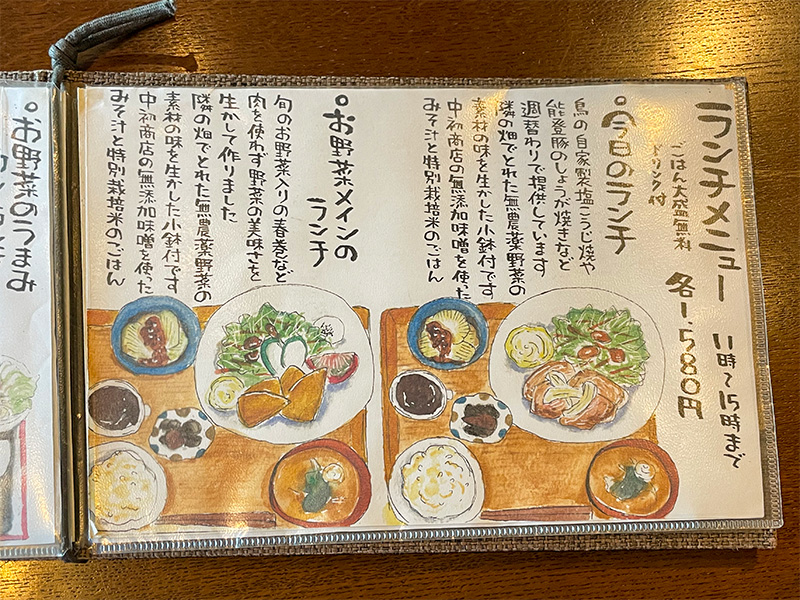 ランチメニュー 11時〜15時まで
ごはん大盛無料
ドリンク付
各1,580円
今日のランチ
鳥の自家製塩こうじ焼や
能登豚のしょうが焼きなど
週替わりで提供しています
隣の畑でとれた無農薬野菜の
素材の味を生かした小鉢付です
中初商店の無添加味噌を使った
みそ汁と特別栽培米のごはん
お野菜メインの
ランチ
旬のお野菜入りの春巻など
肉を使わず野菜の美味さを
生かして作りました
隣の畑でとれた無農薬野菜の
素材の味を生かした小鉢付です
中初商店の無添加味噌を使った
みそ汁と特別栽培米のごはん
お野菜のつまみ